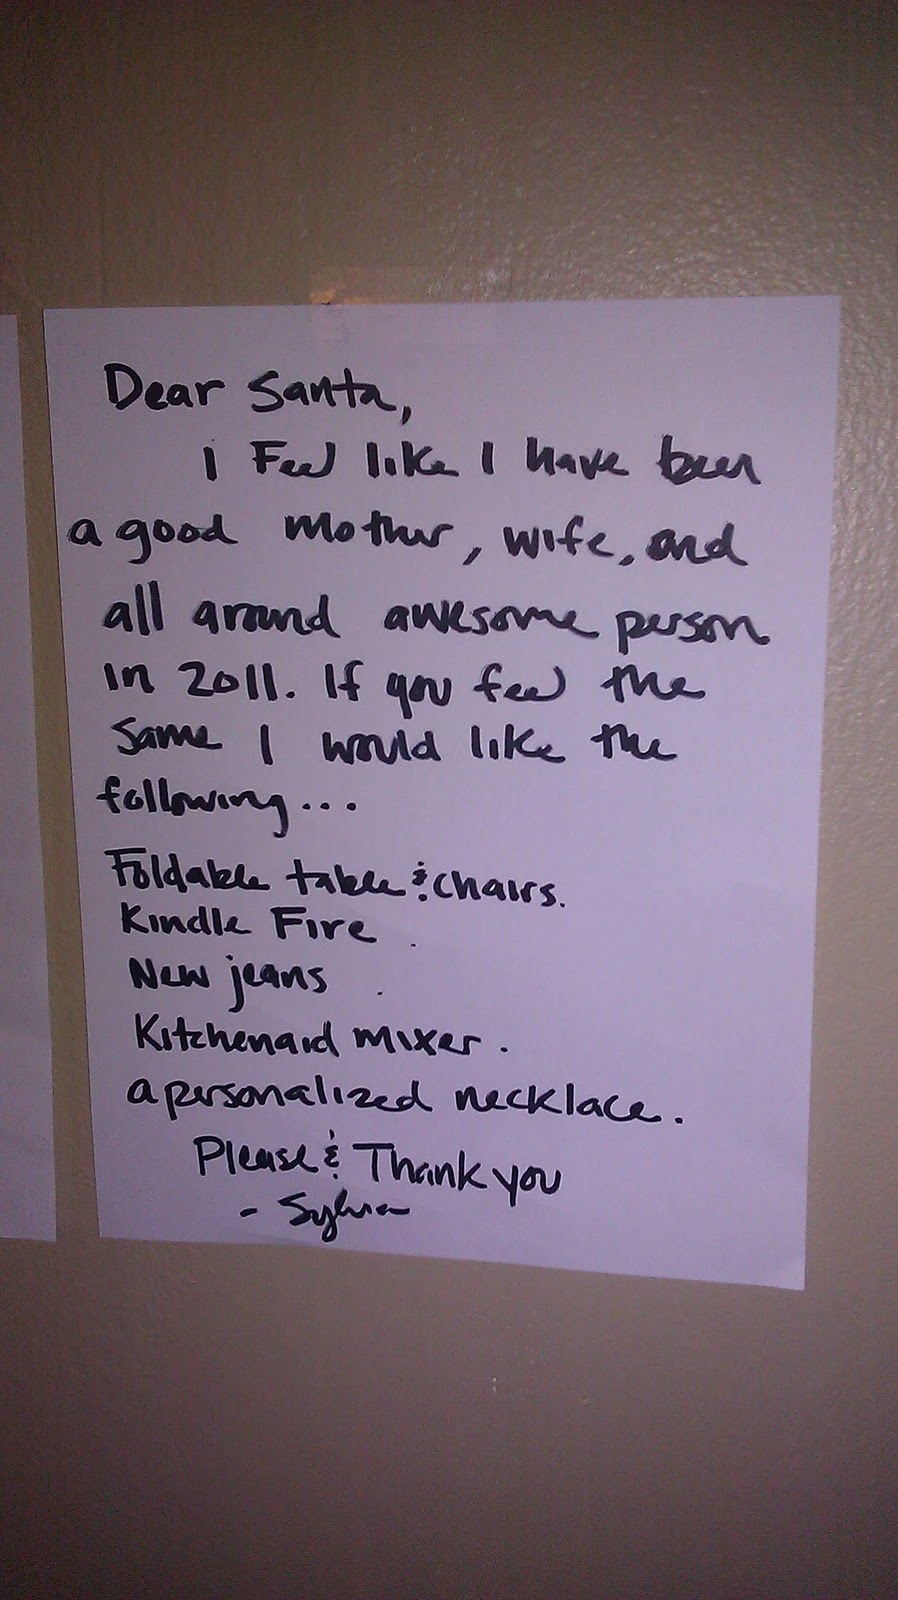 Dear Santa,
I Feel like I have been
a good mother, wife, and
all around awesome person
in 2011. If you feel the
same I would like the
following...
Foldable table & chairs.
Kindle Fire
New jeans
Kitchenaid mixer.
a personalized necklace.
Please & Thank you
- Sylvia